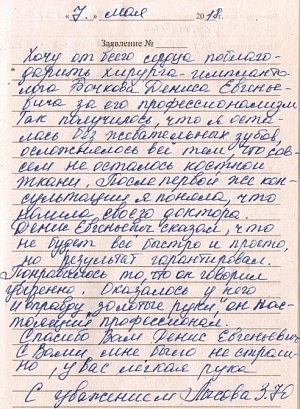 « 7. » мая 2018г.
Заявление № ______
Хочу от всего сердца поблаго-
дарить хирурга-имплантo-
лога Бочкова Дениса Евгенье-
вича за его профессионализм
Так получилось, что я оста-
лась без жевательных зубов,
осложнялось всё тем что сов-
сем не осталось костной
ткани. После первой же кон-
сультации я поняла, что
нашла своего доктора.
Денис Евгеньевич сказал, что
не будет всё быстро и просто,
но результат гарантировал.
Понравилось то, что он говорил
уверенно. Оказалось у него
и правду золотые руки, он нас-
тоящий профессионал.
Спасибо Вам Денис Евгеньевич
С Вами мне было не страш-
но, у Вас легкая рука.
С уважением З.Ю